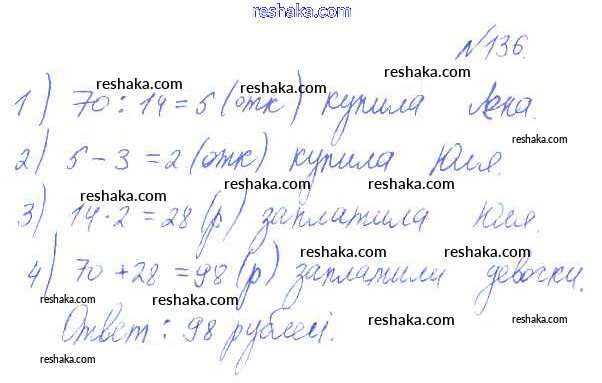 reshaka.com
№136.
reshaka.com
reshaka.com reshaka.com
1) 70 : 14 = 5 (отк) купила Лена.
reshaka.com
2) 5 - 3 = 2 (отк) купила Юля.
reshaka.com reshaka.com reshaka.com
3) 14 · 2 = 28 (р) заплатила Юля.
reshaka.com reshaka.com
4) 70 + 28 = 98 (р) заплатили девочки.
reshaka.com reshaka.com reshaka.com
Ответ: 98 рублей.
reshaka.com reshaka.com
reshaka.com
reshaka.com